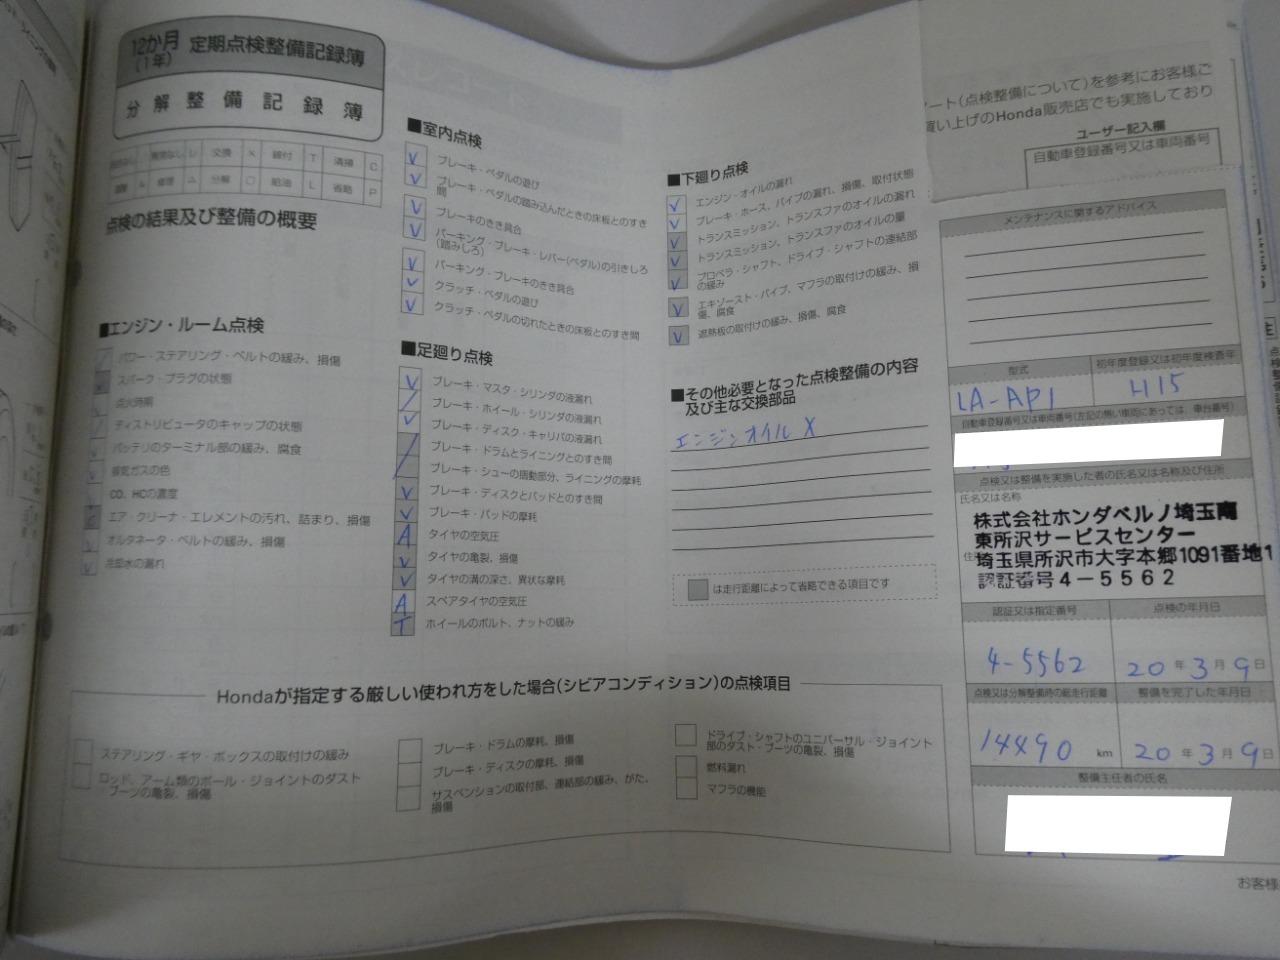 12か月
(1年)
定期点検整備記録簿
分解整備記録簿
異常なし レ 交換 × 締付 T 清掃 C
調整 A 修理 △ 分解 ○ 給油 L 省略 P
点検の結果及び整備の概要
■エンジン・ルーム点検
パワー・ステアリング・ベルトの緩み、損傷
スパーク・プラグの状態
点火時期
ディストリビュータのキャップの状態
バッテリのターミナル部の緩み、腐食
排気ガスの色
CO、HCの濃度
エア・クリーナ・エレメントの汚れ、詰まり、損傷
オルタネータ・ベルトの緩み、損傷
冷却水の漏れ
■室内点検
ブレーキ・ペダルの遊び
ブレーキ・ペダルの踏み込んだときの床板とのすき
間
ブレーキのきき具合
パーキング・ブレーキ・レバー(ペダル)の引きしろ
(踏みしろ)
パーキング・ブレーキのきき具合
クラッチ・ペダルの遊び
クラッチ・ペダルの切れたときの床板とのすき間
■足廻り点検
ブレーキ・マスタ・シリンダの液漏れ
ブレーキ・ホイール・シリンダの液漏れ
ブレーキ・ディスク・キャリパの液漏れ
ブレーキ・ドラムとライニングとのすき間
ブレーキ・シューの摺動部分、ライニングの摩耗
ブレーキ・ディスクとパッドとのすき間
ブレーキ・パッドの摩耗
A タイヤの空気圧
タイヤの亀裂、損傷
タイヤの溝の深さ、異状な摩耗
A スペアタイヤの空気圧
T ホイールのボルト、ナットの緩み
■下廻り点検
エンジン・オイルの漏れ
ブレーキ・ホース、パイプの漏れ、損傷、取付状態
トランスミッション、トランスファのオイルの漏れ
トランスミッション、トランスファのオイルの量
プロペラ・シャフト、ドライブ・シャフトの連結部
の緩み
エキゾースト・パイプ、マフラの取付けの緩み、損
傷、腐食
遮熱板の取付けの緩み、損傷、腐食
■その他必要となった点検整備の内容
及び主な交換部品
エンジンオイル X
は走行距離によって省略できる項目です
Hondaが指定する厳しい使われ方をした場合(シビアコンディション)の点検項目
ステアリング・ギヤ・ボックスの取付けの緩み
ロッド、アーム類のボール・ジョイントのダスト
ブーツの亀裂、損傷
ブレーキ・ドラムの摩耗、損傷
ブレーキ・ディスクの摩耗、損傷
サスペンションの取付部、連結部の緩み、がた、
損傷
ドライブ・シャフトのユニバーサル・ジョイント
部のダスト・ブーツの亀裂、損傷
燃料漏れ
マフラの機能
ート(点検整備について)を参考にお客様ご
買い上げのHonda販売店でも実施しており
ユーザー記入欄
自動車登録番号又は車両番号
メンテナンスに関するアドバイス
型式
初年度登録又は初年度検査年
LA-AP1
H15
自動車登録番号又は車両番号(左記の無い車両にあっては、車台番号)
点検又は整備を実施した者の氏名又は名称及び住所
氏名又は名称
株式会社ホンダベルノ埼玉南
東所沢サービスセンター
埼玉県所沢市大字本郷1091番地1
認証番号4-5562
認証又は指定番号
点検の年月日
4-5562
20年3月9日
点検又は分解整備時の総走行距離
整備を完了した年月日
14490 km
20年3月9日
整備主任者の氏名
お客様